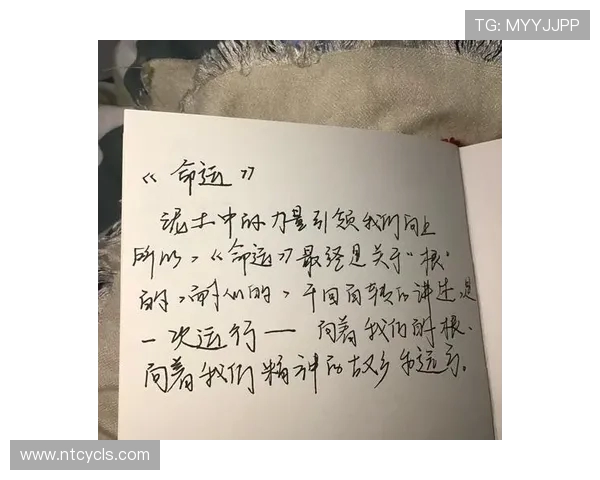 TG: MYYJJPP
《命运》
泥土中的力量引领我们向上
所以，《命运》最终是关于“根”
的，耐人的，千回百转的讲述，是
一次运行 — 向着我们的根.
向着我们精神的故乡和远方。
www.ntcycls.com